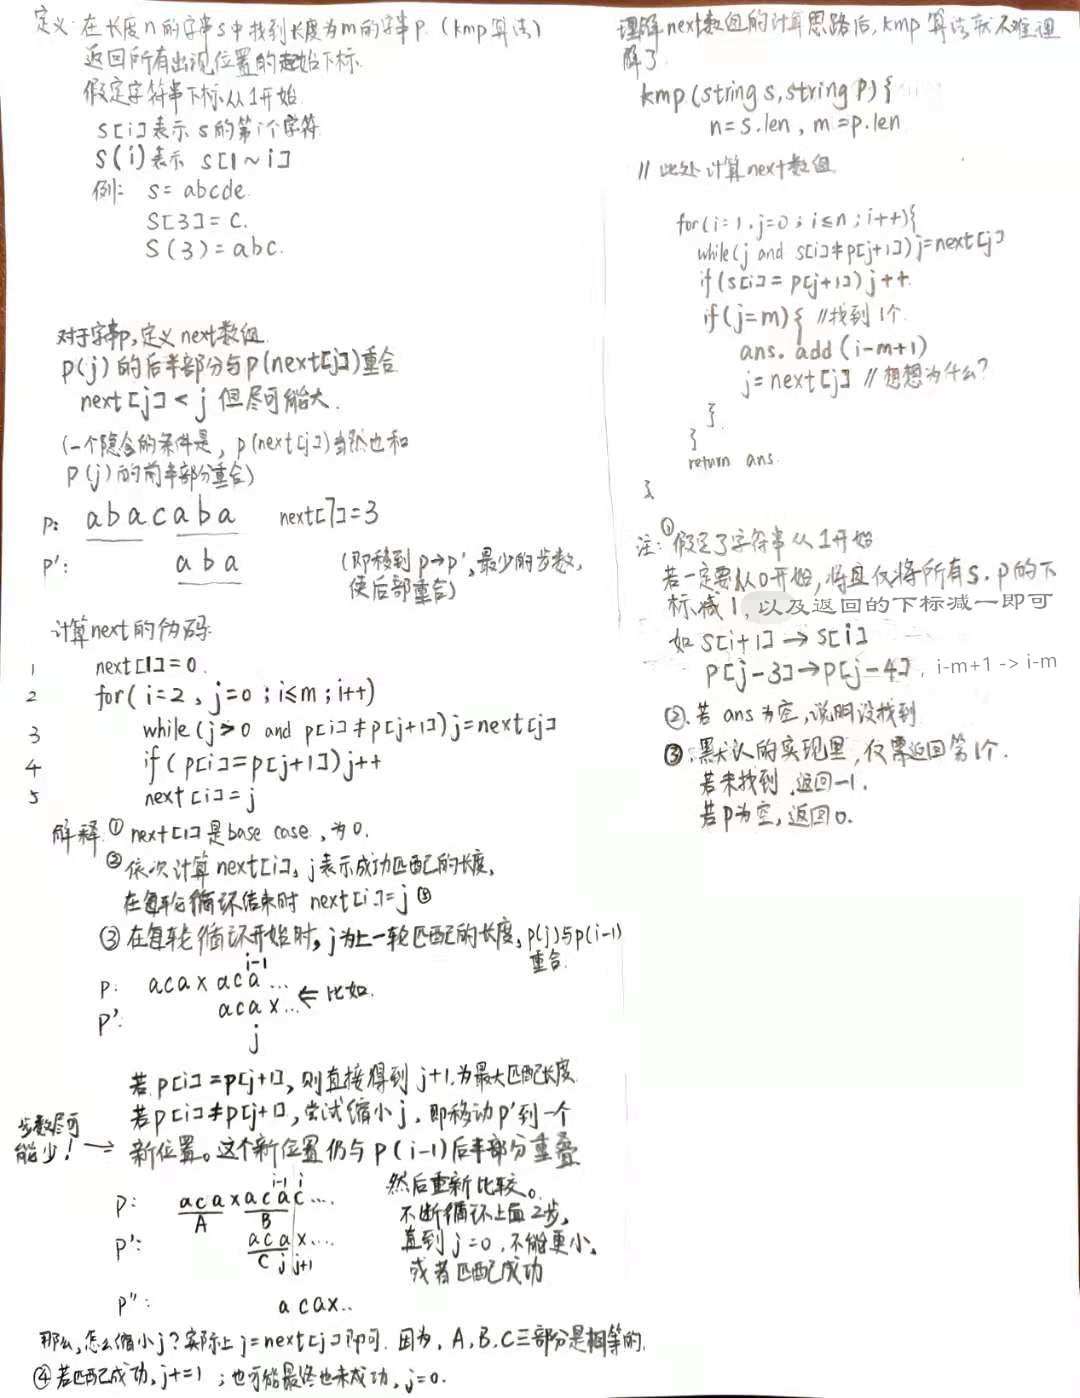 定义: 在长度n的字串s中找到长度为m的字串p. (kmp算法)
返回所有出现位置的起始下标.
假定字符串下标从1开始
s[i]表示s的第i个字符
s(i)表示 s[1~i]
例: s=abcde.
s[3]=c.
s(3)=abc.
对于字串p,定义next数组
p(j)的后半部分与p(next[j])重合
next[j]<j 但尽可能大.
(一个隐含的条件是, p(next[j])当然也和
p(j)的前半部分重合)
p: abacaba next[7]=3
p': aba (即移到p→p',最少的步数,
使后部重合)
计算next的伪码:
1 next[1]=0.
2 for(i=2, j=0; i≤m; i++)
3 while(j>0 and p[i]≠p[j+1]) j=next[j]
4 if(p[i]=p[j+1]) j++
5 next[i]=j
解释: ① next[1]是base case, 为0.
② 依次计算next[i], j表示成功匹配的长度,
在每轮循环结束时 next[i]=j ⑤
③ 在每轮循环开始时, j为上一轮匹配的长度, p(j)与p(i-1)
重合.
i-1
p: acaxaca...
p': acax... ← 比如.
j
若p[i]=p[j+1], 则直接得到j+1.为最大匹配长度
若p[i]≠p[j+1], 尝试缩小j, 即移动p'到一个
新位置。这个新位置仍与p(i-1)后半部分重叠
步数尽可
能少! →
i-1 i
p: acaxacac....
A B
p': acax....
C j j+1
p'': acax..
然后重新比较。
不断循环上面2步,
直到j=0, 不能更小。
或者匹配成功
那么,怎么缩小j? 实际上j=next[j]即可. 因为, A,B,C三部分是相等的.
④ 若匹配成功, j+=1 ; 也可能最终也未成功, j=0.
理解next数组的计算思路后, kmp算法就不难理
解了.
kmp(string s,string p){
n=s.len, m=p.len
// 此处计算next数组
for(i=1,j=0; i≤n; i++){
while(j and s[i]≠p[j+1]) j=next[j]
if(s[i]=p[j+1]) j++
if(j=m){ //找到1个
ans.add(i-m+1)
j=next[j] //想想为什么?
}
}
return ans.
}
注: ① 假定了字符串从1开始
若一定要从0开始, 将且仅将所有s.p的下
标减1, 以及返回的下标减一即可
如 s[i+1]→s[i]
p[j-3]→p[j-4], i-m+1 -> i-m
②. 若ans为空, 说明没找到
③. 默认的实现里, 仅需返回第1个.
若未找到, 返回-1.
若p为空, 返回0.